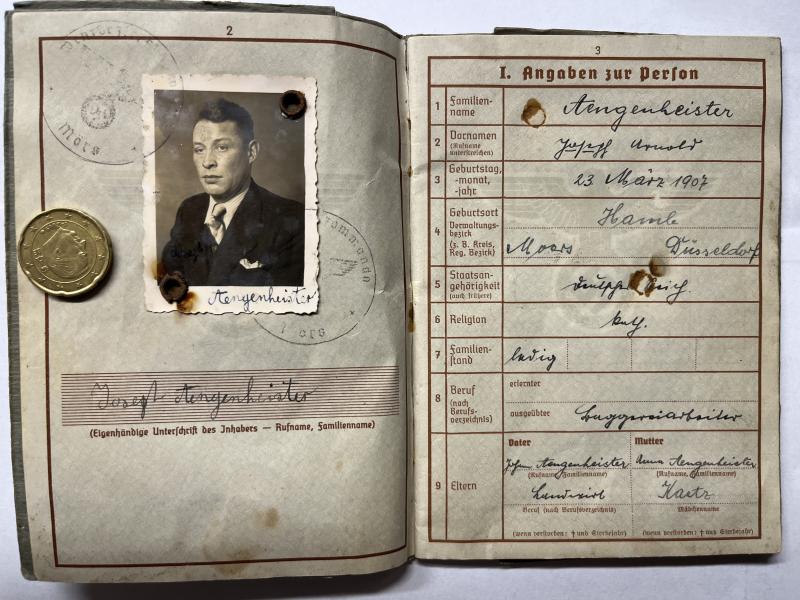 2
Mörs
Mörs
Aengenheister
Josef Aengenheister
(Eigenhändige Unterschrift des Inhabers — Rufname, Familienname)
3
I. Angaben zur Person
1 Familien-
name
Aengenheister
2 Vornamen
(Rufname
unterstreichen)
Joseph Arnold
3 Geburtstag,
-monat,
-jahr
23 März 1907
4 Geburtsort
Verwaltungs-
bezirk
(z. B. Kreis,
Reg. Bezirk)
Moers Düsseldorf
5 Staatsan-
gehörigkeit
(auch frühere)
deutsches Reich
6 Religion
kath.
7 Familien-
stand
ledig
8 Beruf
(nach
Berufs-
verzeichnis)
erlernter
ausgeübter
Baggereiarbeiter
9 Eltern
Vater Mutter
Joh. Aengenheister Anna Aengenheister
(Rufname, Familienname) (Rufname, Familienname)
Landwirt
Beruf (nach Berufsverzeichnis) Mädchenname
(wenn verstorben: † und Sterbejahr) (wenn verstorben: † und Sterbejahr)